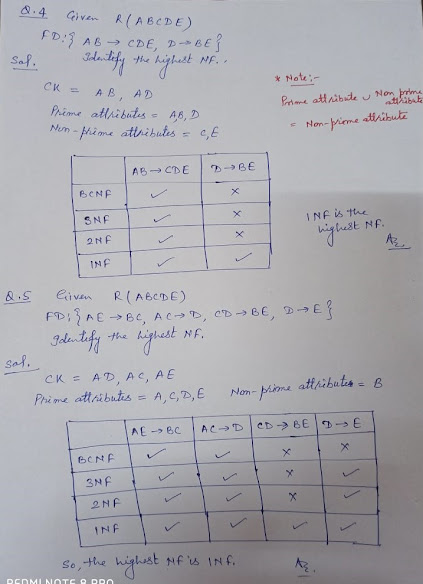 Q.4 Given R(ABCDE)
FD:{ AB → CDE, D → BE}
Identify the highest NF..
Sol.
* Note:-
Prime attribute ∪ Non prime attribute
= Non-prime attribute
CK = AB, AD
Prime attributes = AB, D
Non-prime attributes = C, E
AB → CDE D → BE
BCNF ✓ ×
3NF ✓ ×
2NF ✓ ×
1NF ✓ ✓
1NF is the
highest NF.
Q.5 Given R(ABCDE)
FD:{ AE → BC, AC → D, CD → BE, D → E}
Identify the highest NF.
Sol.
CK = AD, AC, AE
Prime attributes = A, C, D, E Non-prime attributes = B
AE → BC AC → D CD → BE D → E
BCNF ✓ ✓ × ×
3NF ✓ ✓ × ✓
2NF ✓ ✓ × ✓
1NF ✓ ✓ ✓ ✓
So, the highest NF is 1NF.
REDMI NOTE 8 PRO